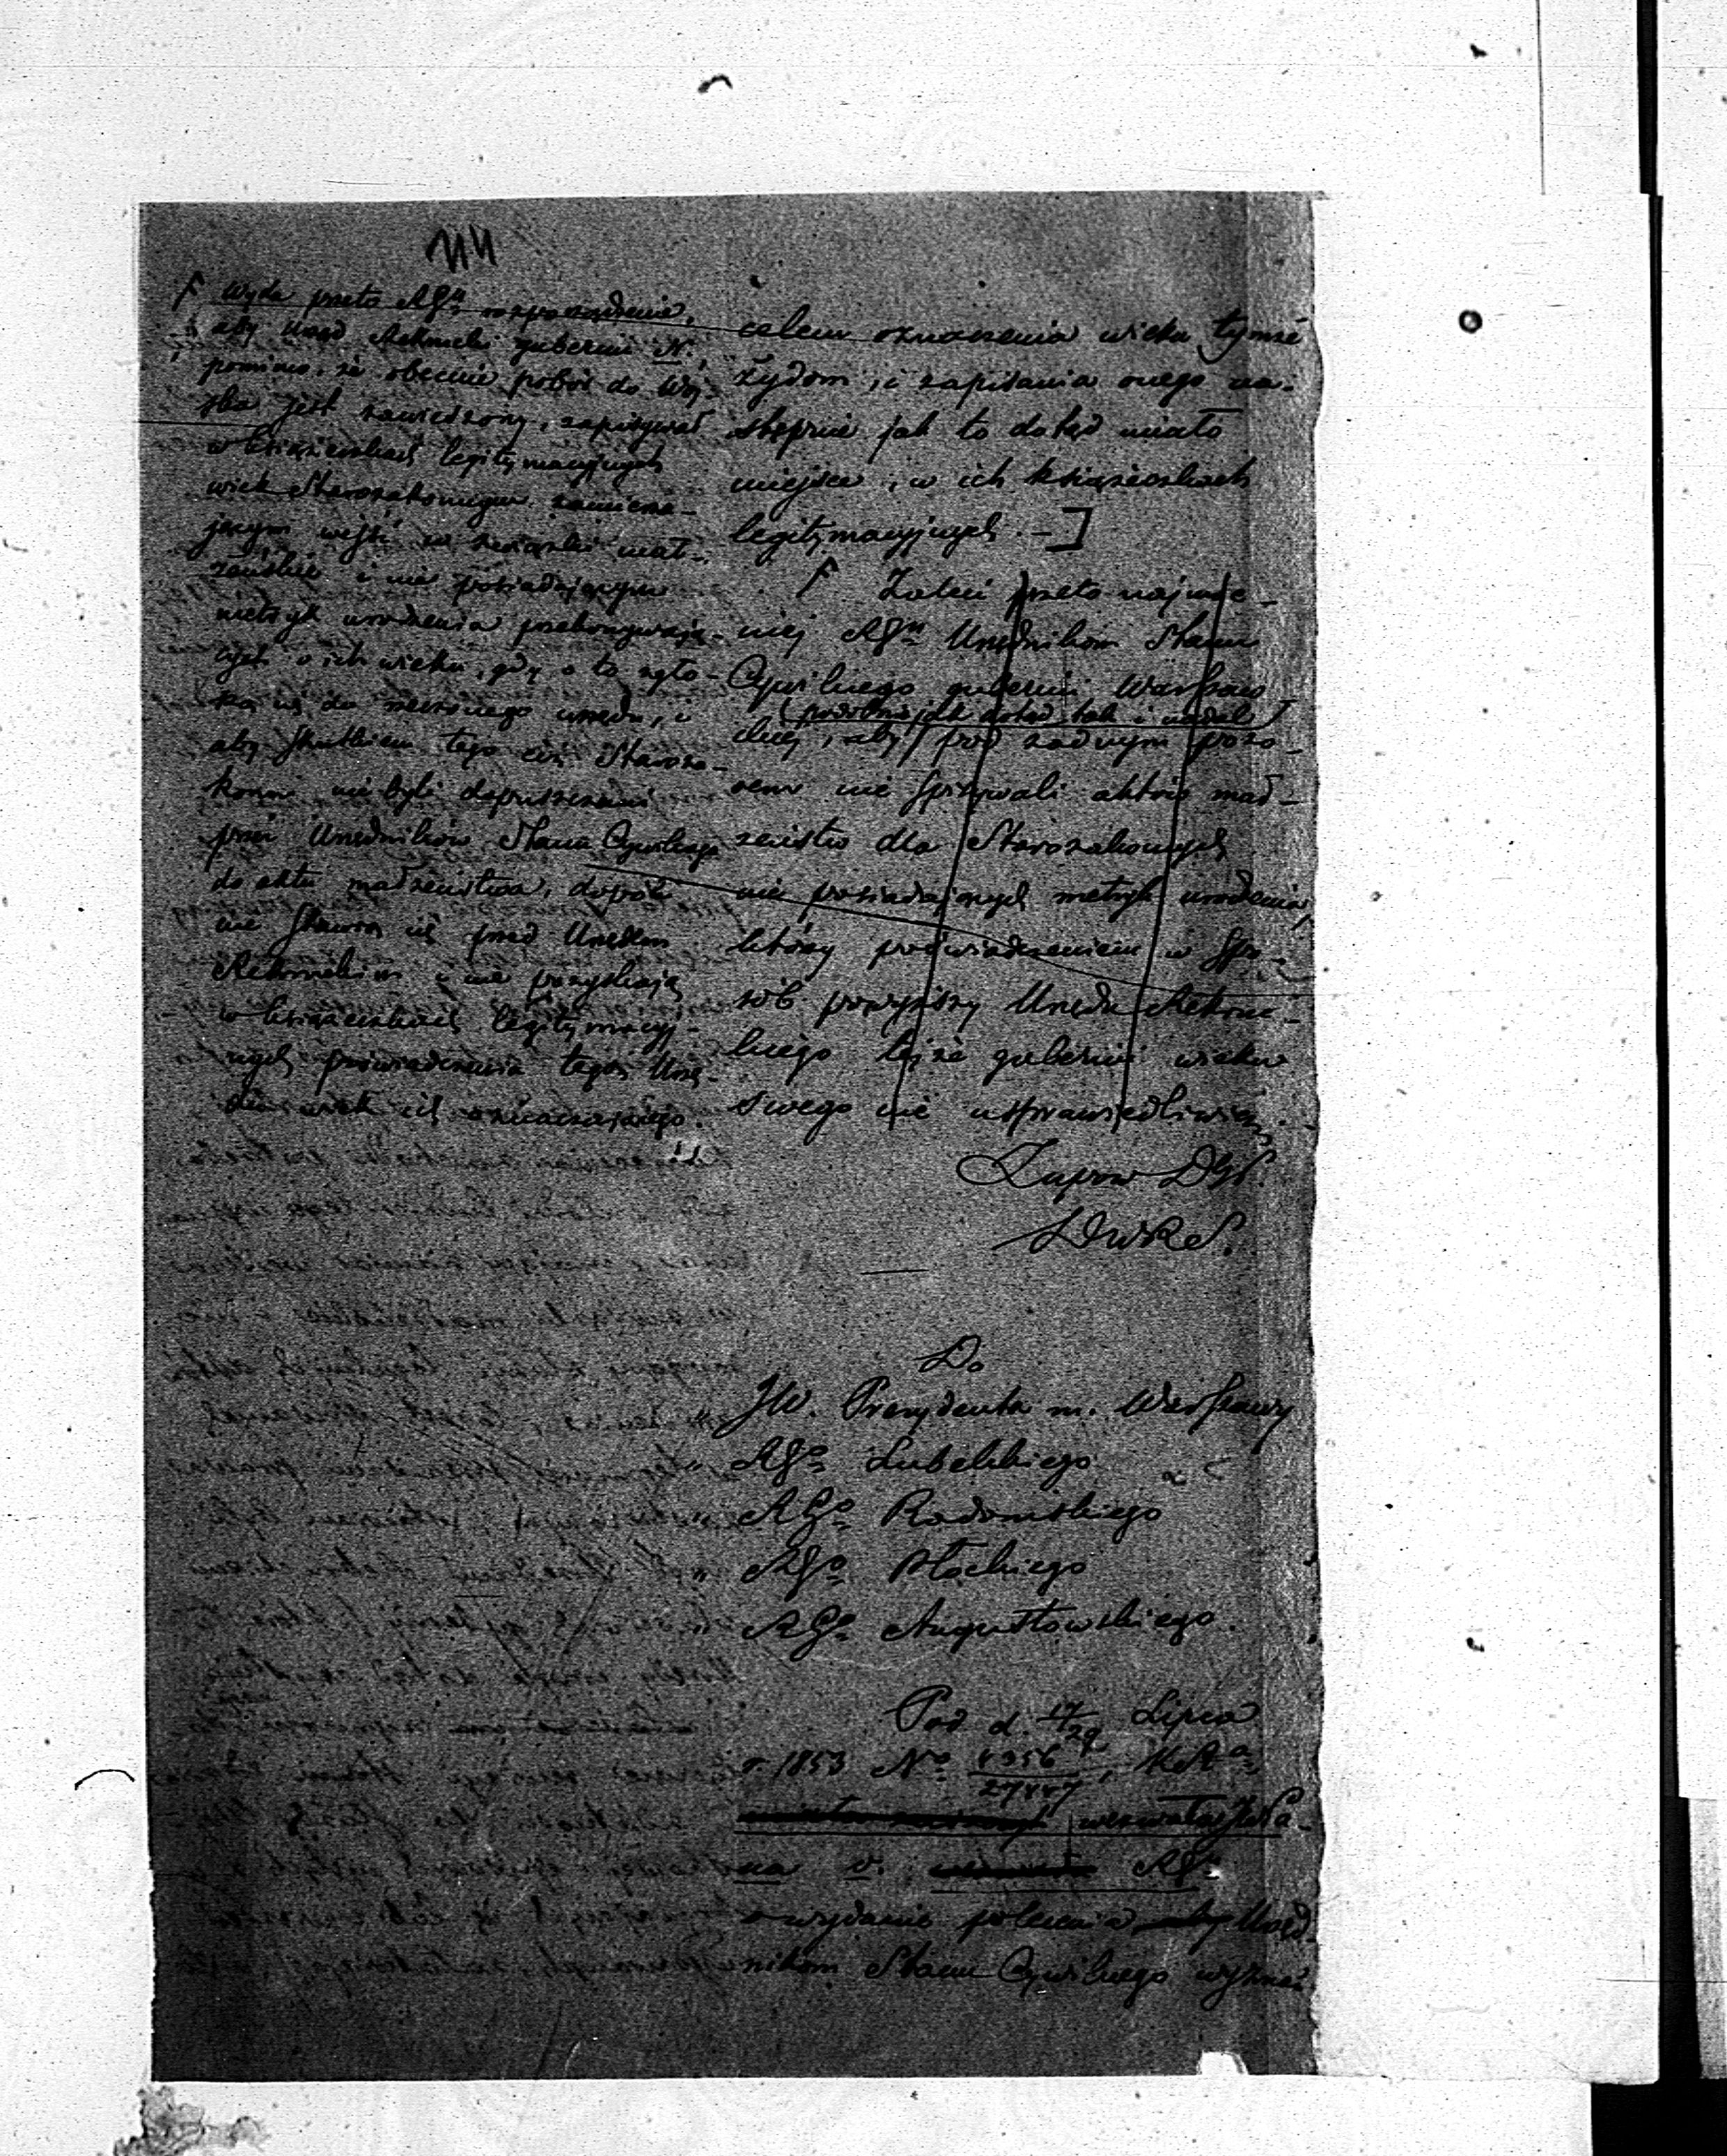 114
Wyda przeto RGn rozporządzenie,
aby Urząd Rekrucki gubernii N.,
pomimo, że obecnie pobór do Woj-
ska jest zawieszony, zapisywał
w książeczkach legitymacyjnych
wiek Starozakonnym zamierza-
jącym wejść w związki mał-
żeńskie i nie posiadającym
metryk urodzenia przekonywają-
cych o ich wieku, gdy o to zgło-
szą się do rzeczonego urzędu, i
aby skutkiem tego ciż Staroza-
konni nie byli dopuszczani
przez Urzędników Stanu Cywilnego
do aktu małżeństwa, dopóki
nie stawią się przed Urzędem
Rekruckim i nie pozyskają
w książeczkach legitymacyj-
nych poświadczenia tegoż Urzę-
du wiek ich oznaczającego.
celem oznaczenia wieku tymże
Żydom, i zapisania onego na-
stępnie jak to dotąd miało
miejsce, w ich książeczkach
legitymacyjnych. —]
Zaleci przeto najmoc-
niej RGn Urzędnikom Stanu
Cywilnego gubernii Warszaw-
(podobnie jak dotąd tak i nadal)
skiej, aby pod żadnym pozo-
rem nie spisywali aktów mał-
żeństw dla Starozakonnych
nie posiadających metryk urodzenia,
którzy poświadczeniem w spo-
sób powyższy Urzędu Rekruc-
kiego tejże gubernii wieku
swego nie usprawiedliwią.
Zupow DGł.
DWRS.
Do
JW. Prezydenta m. Warszawy
" RGo Lubelskiego
" RGo Radomskiego
" RGo Płockiego
" RGo Augustowskiego.
Pod d. 17/29 Lipca
r. 1853 No 4356/27447,
na v. RGn
o wydanie polecenia aby Urzęd-
nikom Stanu Cywilnego wyznań